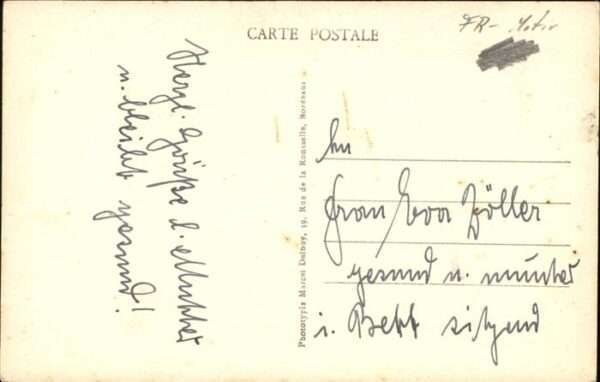 CARTE POSTALE
FR- Motiv
Herzl. Grüße l. Mutter
u. bleibt gesund!
Phototypie Marcel Delboy, 19, Rue de la Rousselle, Bordeaux
An
Frau Eva Zöller
gesund u. munter
i. Bett sitzend